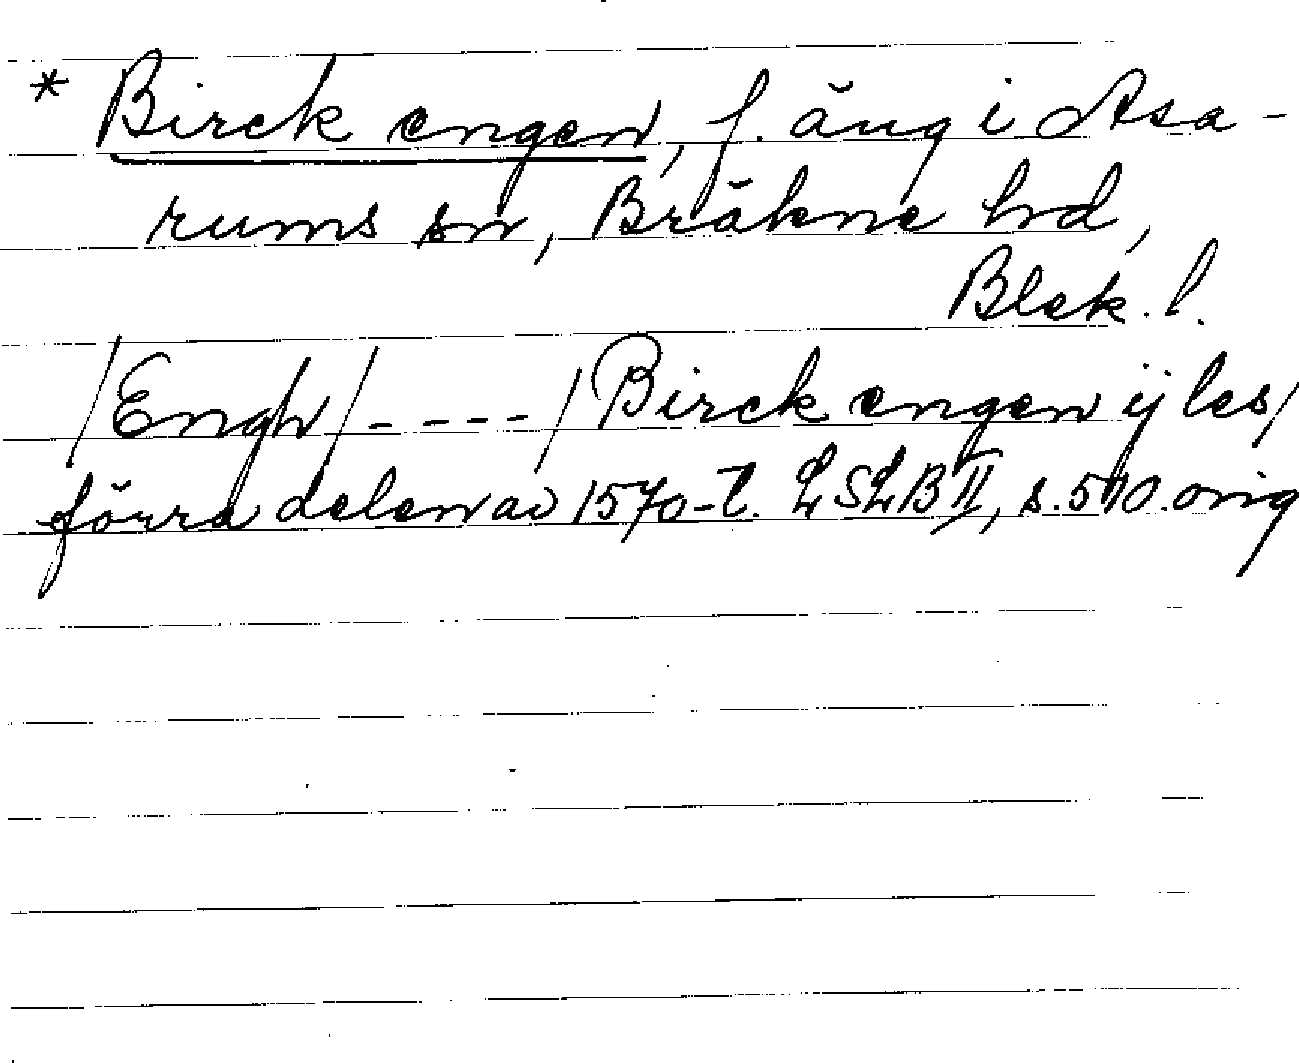 * Birck engen, f. äng i Asa-
rums sn, Bräkne hd,
Blek. l.
/Engh/ - - - - /Birck engen ij les/
förra delen av 1570-t. LSLB II, s. 510. orig